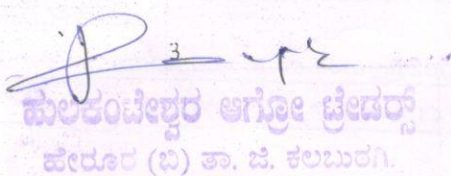 ಹುಲಕಂಟೇಶ್ವರ ಆಗ್ರೋ ಟ್ರೇಡರ್ಸ್
ಹೇರೂರ (ಬಿ) ತಾ. ಜಿ. ಕಲಬುರಗಿ.